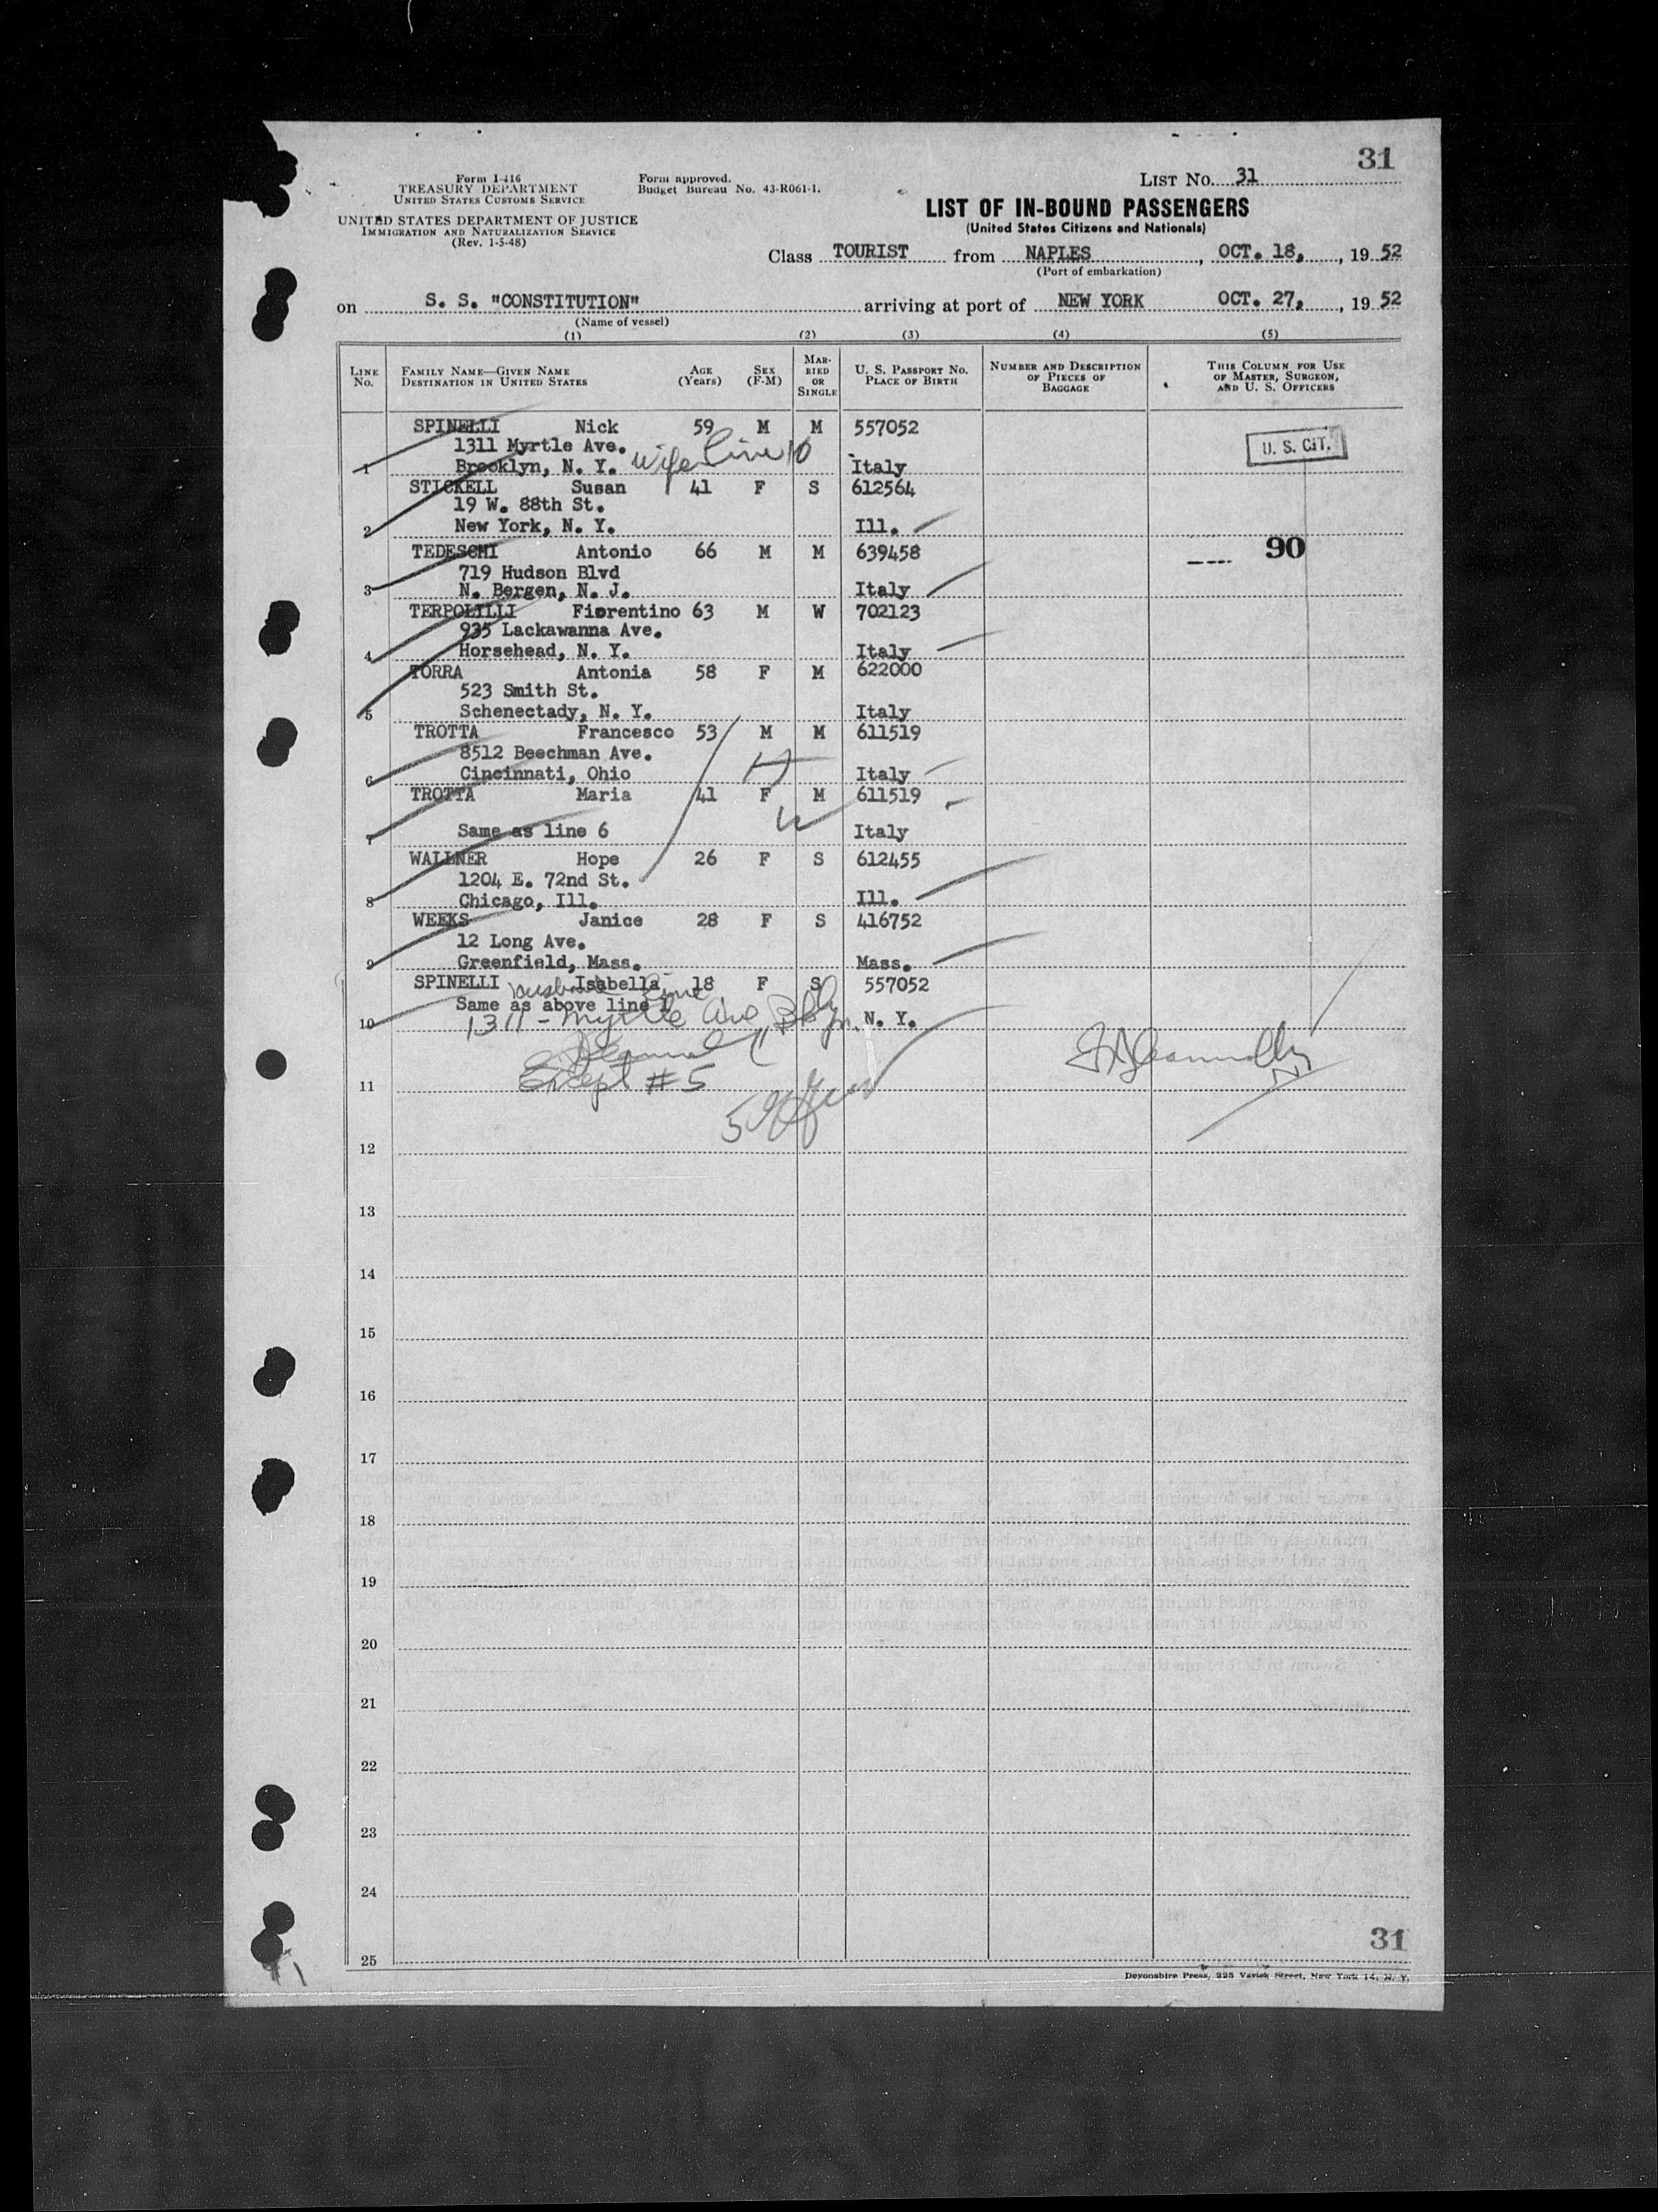 31
Form I-416
TREASURY DEPARTMENT
UNITED STATES CUSTOMS SERVICE
UNITED STATES DEPARTMENT OF JUSTICE
IMMIGRATION AND NATURALIZATION SERVICE
(Rev. 1-5-48)
Form approved.
Budget Bureau No. 43-R061-1.
LIST No. 31
LIST OF IN-BOUND PASSENGERS
(United States Citizens and Nationals)
Class TOURIST from NAPLES, OCT. 18, 1952
(Port of embarkation)
on S. S. "CONSTITUTION" arriving at port of NEW YORK OCT. 27, 1952
(Name of vessel)
(1) (2) (3) (4) (5)
LINE No. FAMILY NAME—GIVEN NAME DESTINATION IN UNITED STATES AGE (Years) SEX (F-M) MARRIED OR SINGLE U. S. PASSPORT No. PLACE OF BIRTH NUMBER AND DESCRIPTION OF PIECES OF BAGGAGE THIS COLUMN FOR USE OF MASTER, SURGEON, AND U. S. OFFICERS
SPINELLI Nick 59 M M 557052
1311 Myrtle Ave. U. S. CIT.
1 Brooklyn, N. Y. Wife Line 10 Italy
STICKELL Susan 41 F S 612564
19 W. 88th St.
2 New York, N. Y. Ill.
TEDESCHI Antonio 66 M M 639458 90
719 Hudson Blvd
3 N. Bergen, N. J. Italy
TERPOLILLI Fiorentino 63 M W 702123
935 Lackawanna Ave.
4 Horsehead, N. Y. Italy
TORRA Antonia 58 F M 622000
523 Smith St.
5 Schenectady, N. Y. Italy
TROTTA Francesco 53 M M 611519
8512 Beechman Ave. H
6 Cincinnati, Ohio Italy
TROTTA Maria 41 F M 611519
W
7 Same as line 6 Italy
WALLNER Hope 26 F S 612455
1204 E. 72nd St.
8 Chicago, Ill. Ill.
WEEKS Janice 28 F S 416752
12 Long Ave.
9 Greenfield, Mass. Mass.
SPINELLI Isabella 18 F S 557052
husband Line
Same as above line 1
10 1311 - Myrtle Ave Bklyn. N. Y.
11 Except #5
12
13
14
15
16
17
18
19
20
21
22
23
24
25
31
Devonshire Press, 225 Varick Street, New York 14, N. Y.